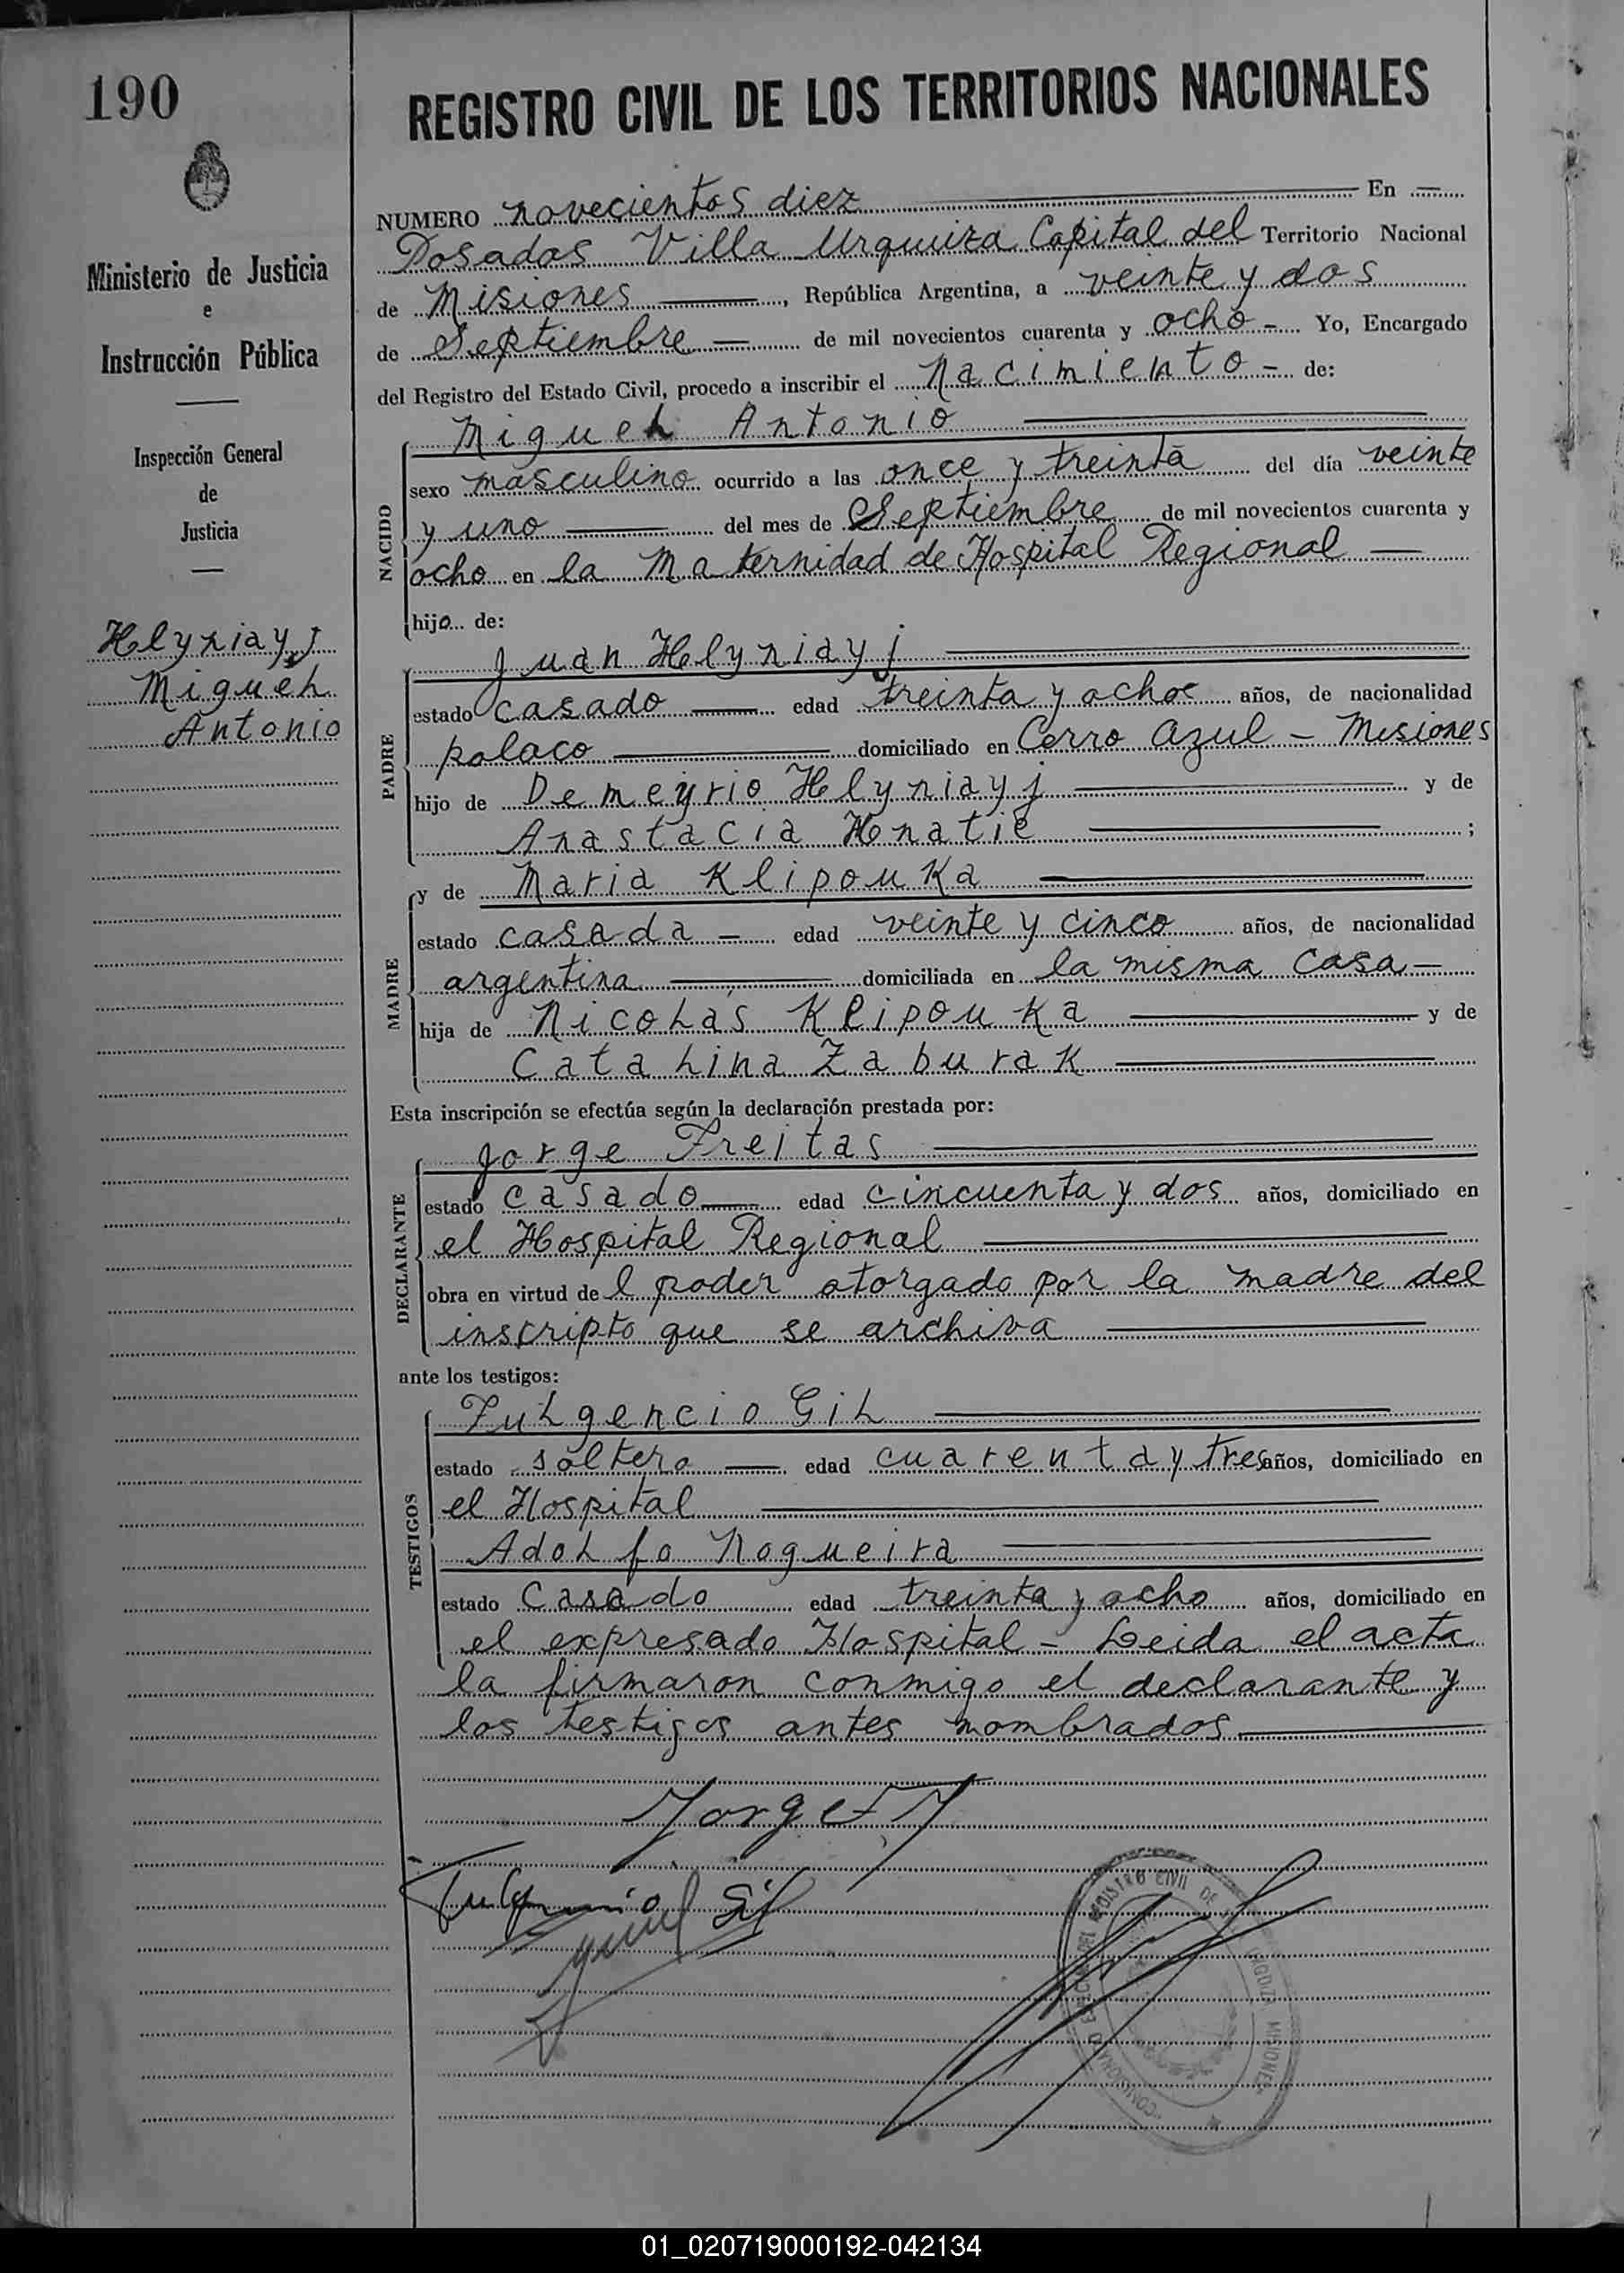 190
Ministerio de Justicia
e
Instrucción Pública
Inspección General
de
Justicia
Helyniayj
Miguel
Antonio
REGISTRO CIVIL DE LOS TERRITORIOS NACIONALES
NUMERO novecientos diez En
Posadas Villa Urquiza Capital del Territorio Nacional
de Misiones, República Argentina, a veinte y dos
de Septiembre de mil novecientos cuarenta y ocho Yo, Encargado
del Registro del Estado Civil, procedo a inscribir el nacimiento de:
Miguel Antonio
NACIDO
sexo masculino ocurrido a las once y treinta del día veinte
y uno del mes de Septiembre de mil novecientos cuarenta y
ocho en la Maternidad de Hospital Regional
hijo de:
Juan Helyniayj
PADRE
estado casado edad treinta y ocho años, de nacionalidad
polaco domiciliado en Cerro Azul - Misiones
hijo de Demeyrio Helyniayj y de
Anastacia Hnatie ;
MADRE
y de Maria Klipouka
estado casada edad veinte y cinco años, de nacionalidad
argentina domiciliada en la misma casa
hija de Nicolás Klipouka y de
Catalina Zaburak
Esta inscripción se efectúa según la declaración prestada por:
Jorge Freitas
DECLARANTE
estado casado edad cincuenta y dos años, domiciliado en
el Hospital Regional
obra en virtud del poder otorgado por la madre del
inscripto que se archiva
ante los testigos:
Fulgencio Gil
TESTIGOS
estado soltero edad cuarenta y tres años, domiciliado en
el Hospital
Adolfo Nogueira
estado casado edad treinta y ocho años, domiciliado en
el expresado Hospital - Leida el acta
la firmaron conmigo el declarante y
los testigos antes nombrados
Jorge
Fulgencio Gil
REGISTRO CIVIL DE
MISIONES
01_020719000192-042134